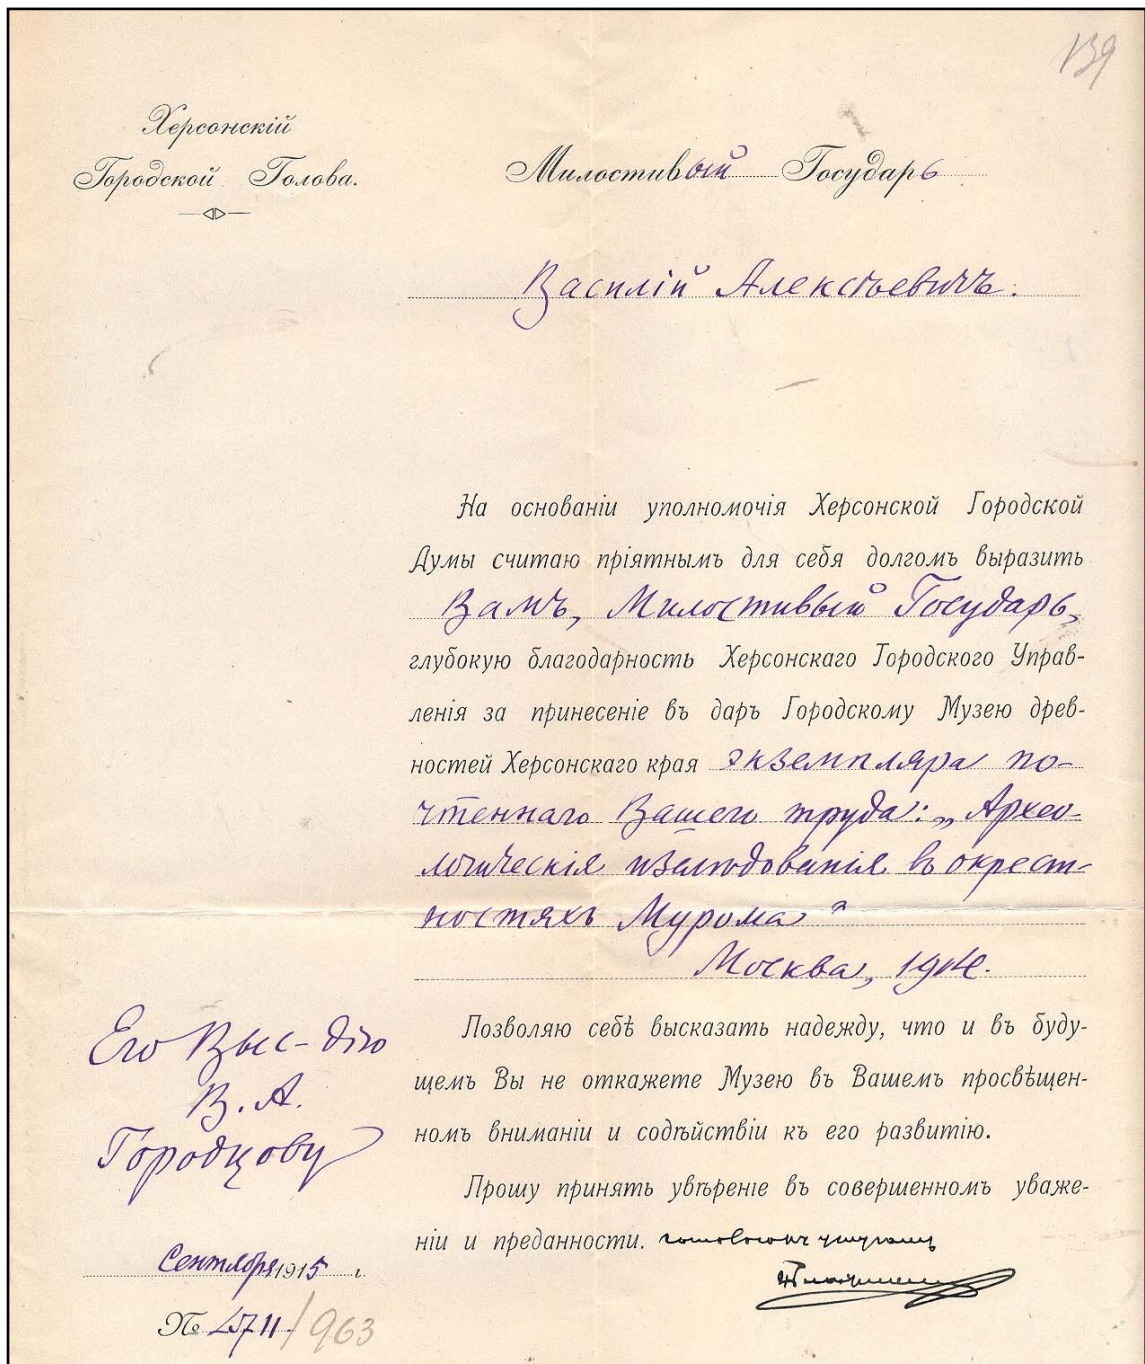 139
Херсонскій
Городской Голова.
Милостивый Государь
Василій Алексѣевичъ.
На основаніи уполномочія Херсонской Городской
Думы считаю пріятнымъ для себя долгомъ выразить
Вамъ, Милостивый Государь,
глубокую благодарность Херсонскаго Городского Управ-
ленія за принесеніе въ даръ Городскому Музею древ-
ностей Херсонскаго края экземпляра по-
чтеннаго Вашего труда: „Архео-
логическія изслѣдованія въ окрест-
ностяхъ Мурома"
Москва, 1914.
Позволяю себѣ высказать надежду, что и въ буду-
щемъ Вы не откажете Музею въ Вашемъ просвѣщен-
номъ вниманіи и содѣйствіи къ его развитію.
Прошу принять увѣреніе въ совершенномъ уваже-
ніи и преданности.
Его Выс-дію
В. А.
Городцову
Сентября 1915 г.
№ 4711/963